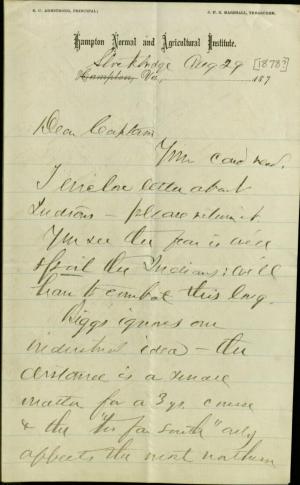 S. C. ARMSTRONG, PRINCIPAL; J. F. B. MARSHALL, TREASURER.
Hampton Normal and Agricultural Institute.
Stockbridge Aug 29 [1878?]
Hampton, Va., 187
Dear Captain
Your card recd.
I enclose letter about
Indians – please return it
You see the fear is we'd
spoil the Indians: We'll
have to combat this long.
Riggs ignores our
industrial idea – the
distance is a small
matter for a 3 yrs. course
& the "too far south" only
affects the most northern